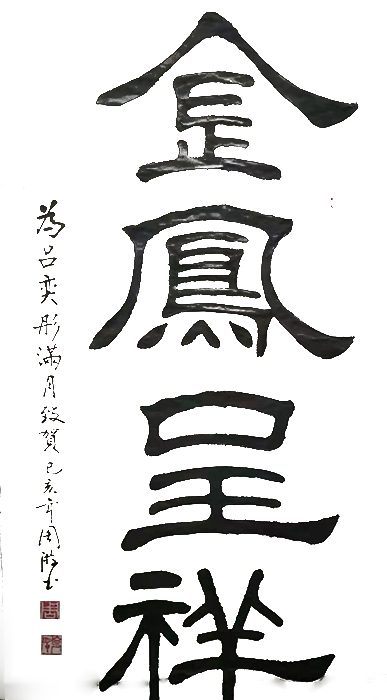 金鳳呈祥
為呂奕彤滿月致賀己亥年周游书